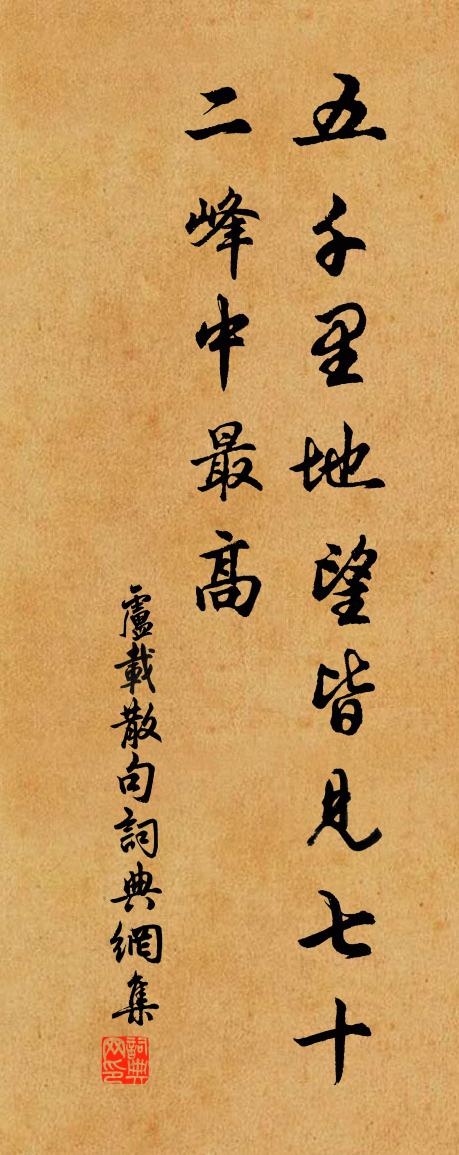 五千里地望皆見七十
二峰中最高
盧載散句詞典網集
詞典網印